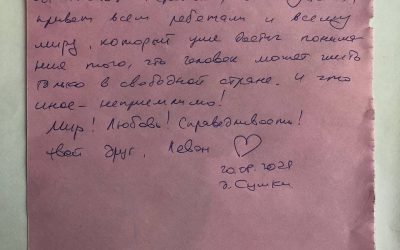 привет всем ребятам и всему
миру, который уже достиг понима-
ния того, что человек может жить
только в свободной стране. И что
иное - неприемлимо!
Мир! Любовь! Справедливость!
твой друг, Леван ♡
д. Сушки